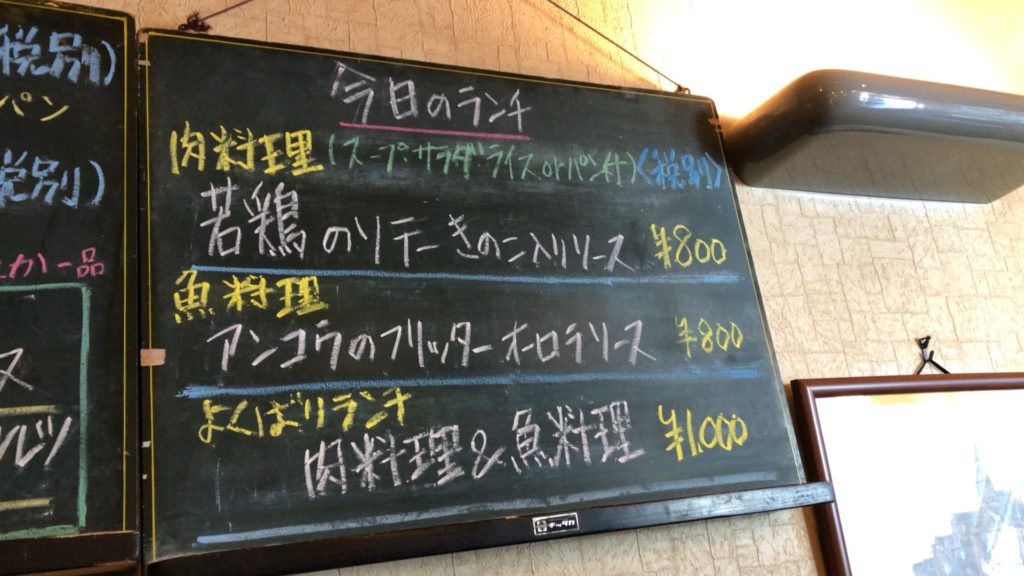 税別)
パン
税別)
一品
ス
今日のランチ
肉料理(スープ・サラダライスorパン付)(税別)
若鶏のソテーきのこ入りソース ¥800
魚料理
アンコウのフリッターオーロラソース ¥800
よくばりランチ
肉料理&魚料理 ¥1,000